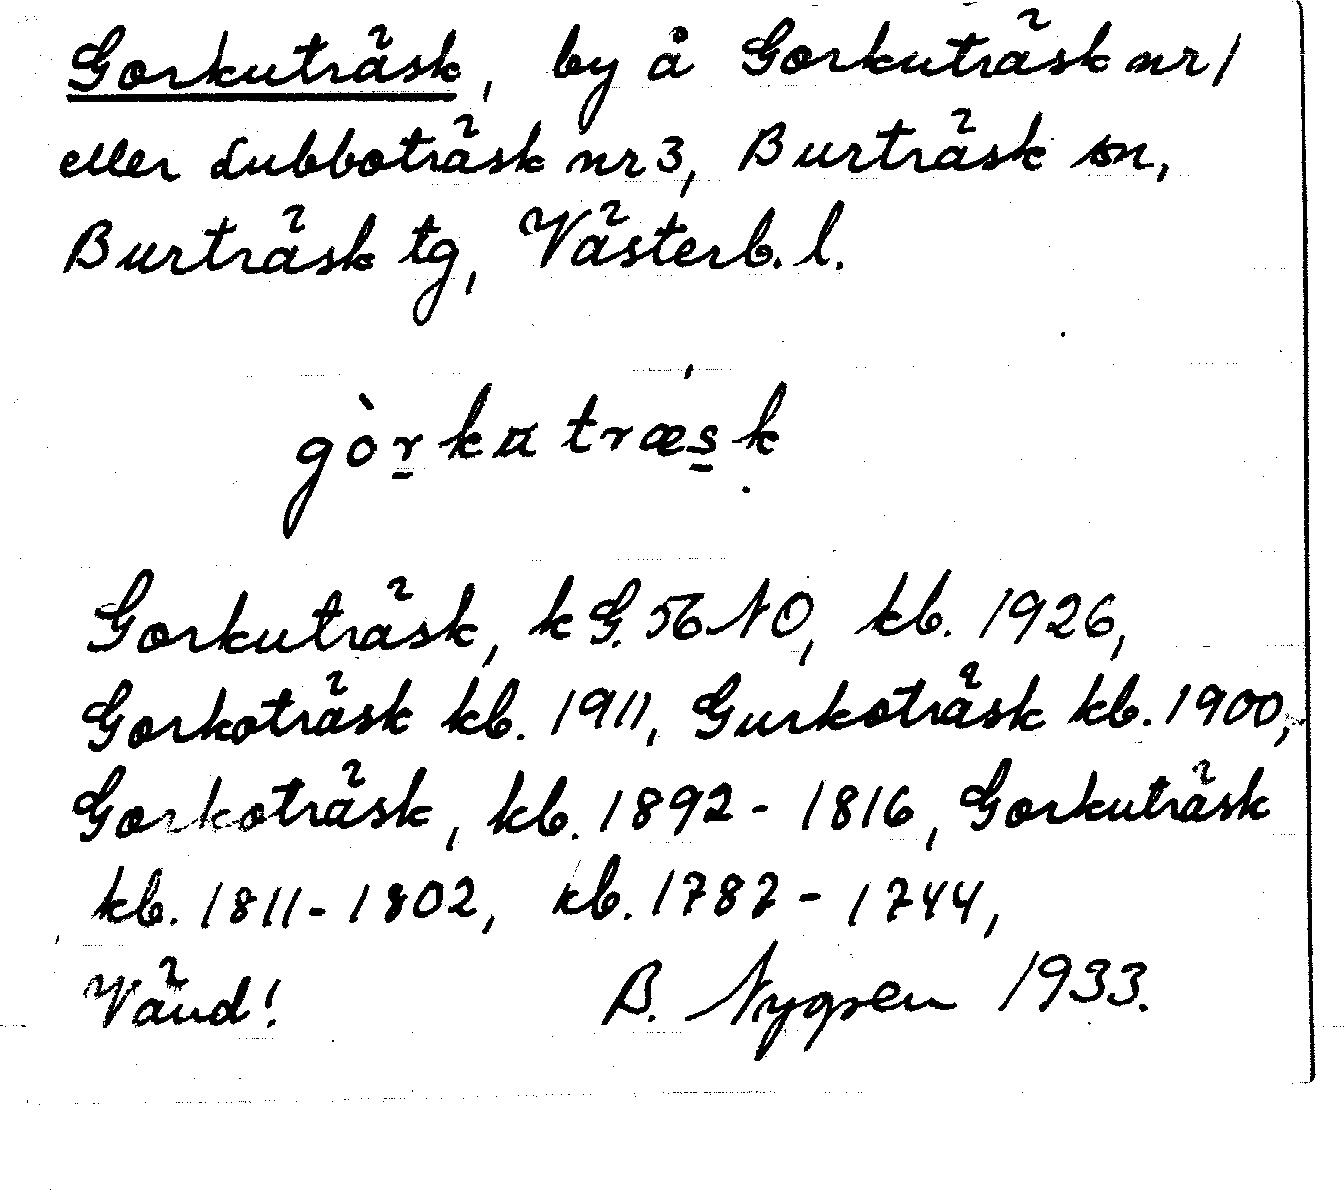 Gorkuträsk, by å Gorkuträsk nr 1
eller Lubboträsk nr 3, Burträsk sn,
Burträsk tg, Västerb. l.
gòrkatræsk
Gorkuträsk, k G. 56 NO, kb. 1926,
Gorkoträsk kb. 1911, Gurkoträsk kb. 1900,
Gorkoträsk, kb. 1892 - 1816, Gorkuträsk
kb. 1811 - 1802, kb. 1787 - 1744,
Vänd! B. Nygren 1933.